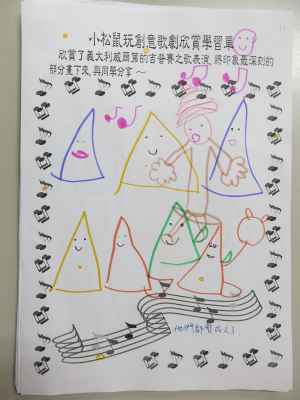 小松鼠玩創意歌劇欣賞學習單
欣賞了義大利威爾第的吉普賽之歌表演，將印象最深刻的
部分畫下來，與同學分享～
他們都